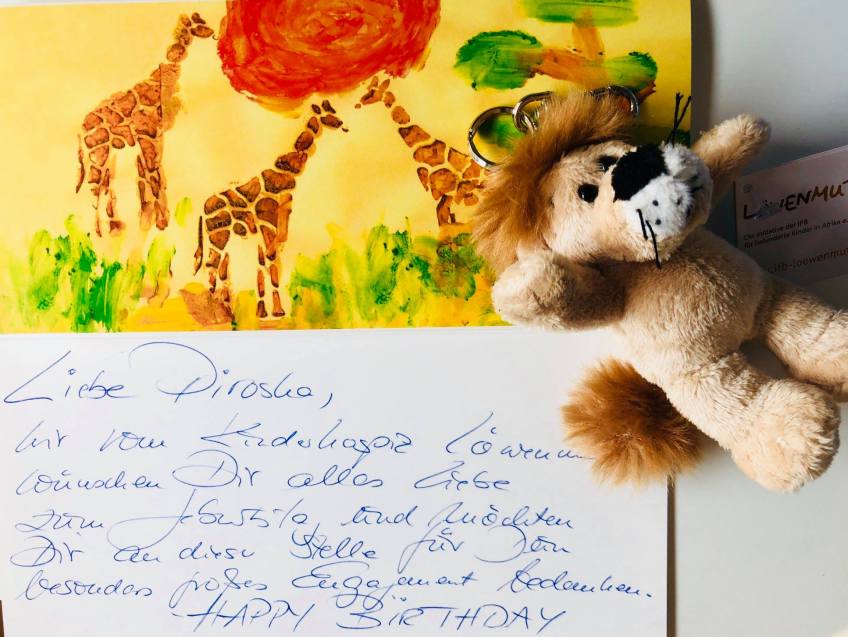 LÖWENMUT
Die Initiative der IFB
für behinderte Kinder in Afrika e.
ifb-loewenmut
Liebe Piroska,
wir vom Kinderhospiz Löwenm
wünschen Dir alles Liebe
zum und möchten
Dir an dieser Stelle für Dein
besonders großes Engagement bedanken.
-HAPPY BIRTHDAY